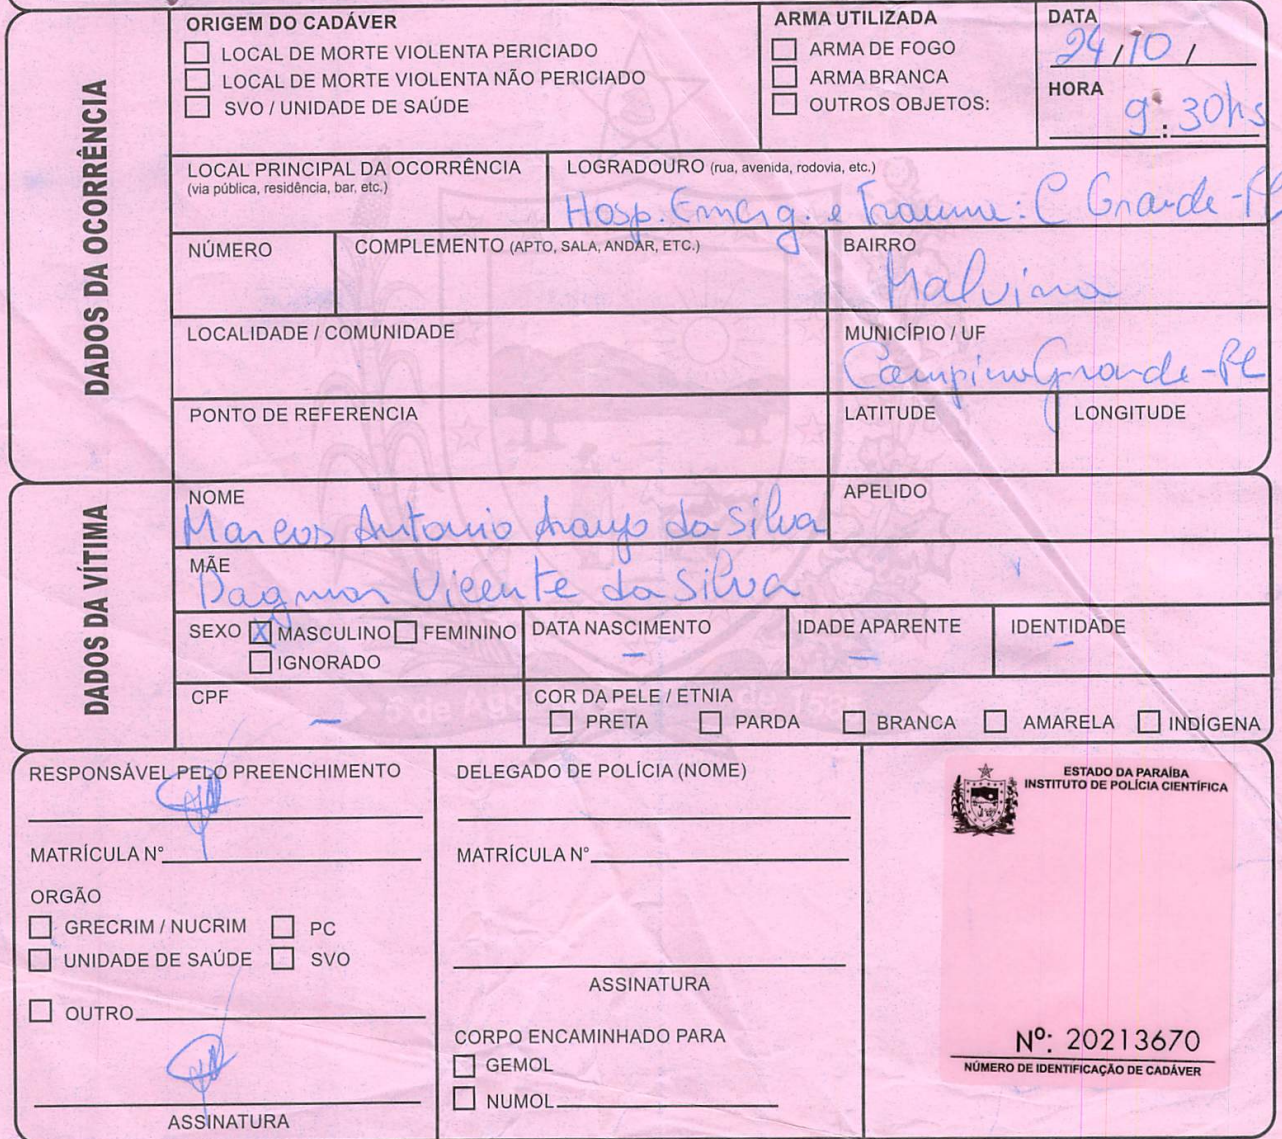 DADOS DA OCORRÊNCIA
ORIGEM DO CADÁVER
LOCAL DE MORTE VIOLENTA PERICIADO
LOCAL DE MORTE VIOLENTA NÃO PERICIADO
SVO / UNIDADE DE SAÚDE
ARMA UTILIZADA
ARMA DE FOGO
ARMA BRANCA
OUTROS OBJETOS:
DATA
24/10/
HORA
9:30hs
LOCAL PRINCIPAL DA OCORRÊNCIA
(via pública, residência, bar, etc.)
LOGRADOURO (rua, avenida, rodovia, etc.)
Hosp. Emerg. e Trauma: C Grande-
NÚMERO
COMPLEMENTO (APTO, SALA, ANDAR, ETC.)
BAIRRO
Malvina
LOCALIDADE / COMUNIDADE
MUNICÍPIO / UF
Campina Grande-
PONTO DE REFERENCIA
LATITUDE
LONGITUDE
DADOS DA VÍTIMA
NOME
Marcos Antonio Araujo da Silva
APELIDO
MÃE
Dagmar Vicente da Silva
SEXO X MASCULINO FEMININO
IGNORADO
DATA NASCIMENTO
-
IDADE APARENTE
-
IDENTIDADE
-
CPF
-
COR DA PELE / ETNIA
PRETA PARDA BRANCA AMARELA INDÍGENA
RESPONSÁVEL PELO PREENCHIMENTO
MATRÍCULA N°
ORGÃO
GRECRIM / NUCRIM PC
UNIDADE DE SAÚDE SVO
OUTRO
ASSINATURA
DELEGADO DE POLÍCIA (NOME)
MATRÍCULA N°
ASSINATURA
CORPO ENCAMINHADO PARA
GEMOL
NUMOL
ESTADO DA PARAÍBA
INSTITUTO DE POLÍCIA CIENTÍFICA
Nº: 20213670
NÚMERO DE IDENTIFICAÇÃO DE CADÁVER